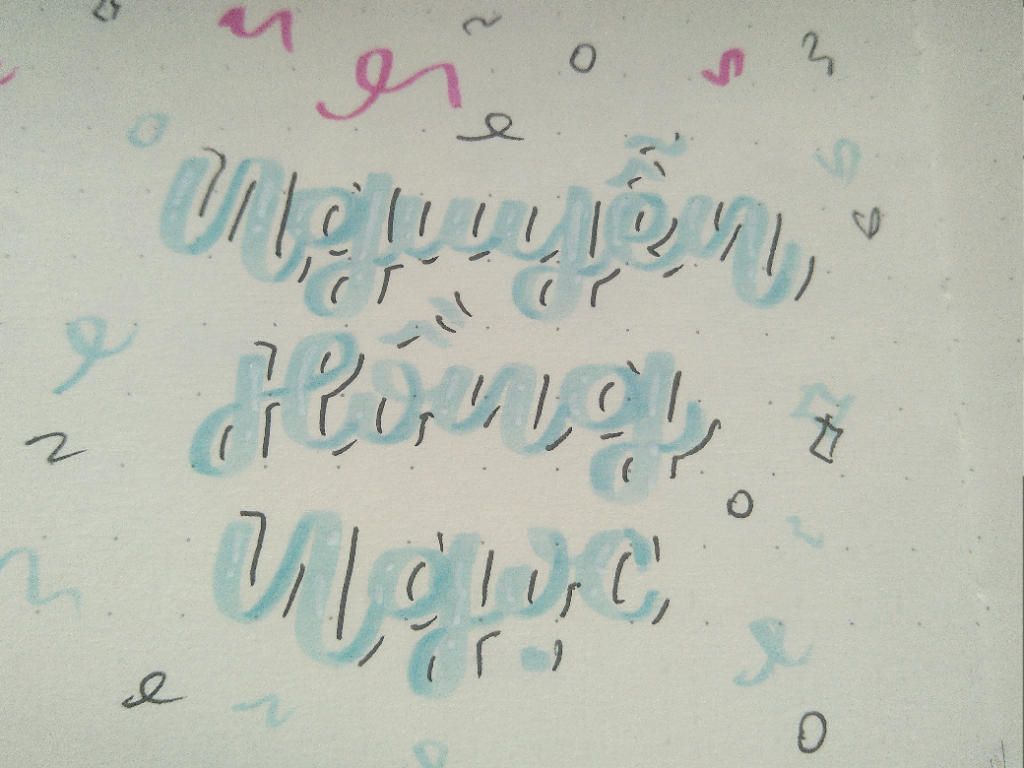 Nguyễn
Hồng
Ngọc